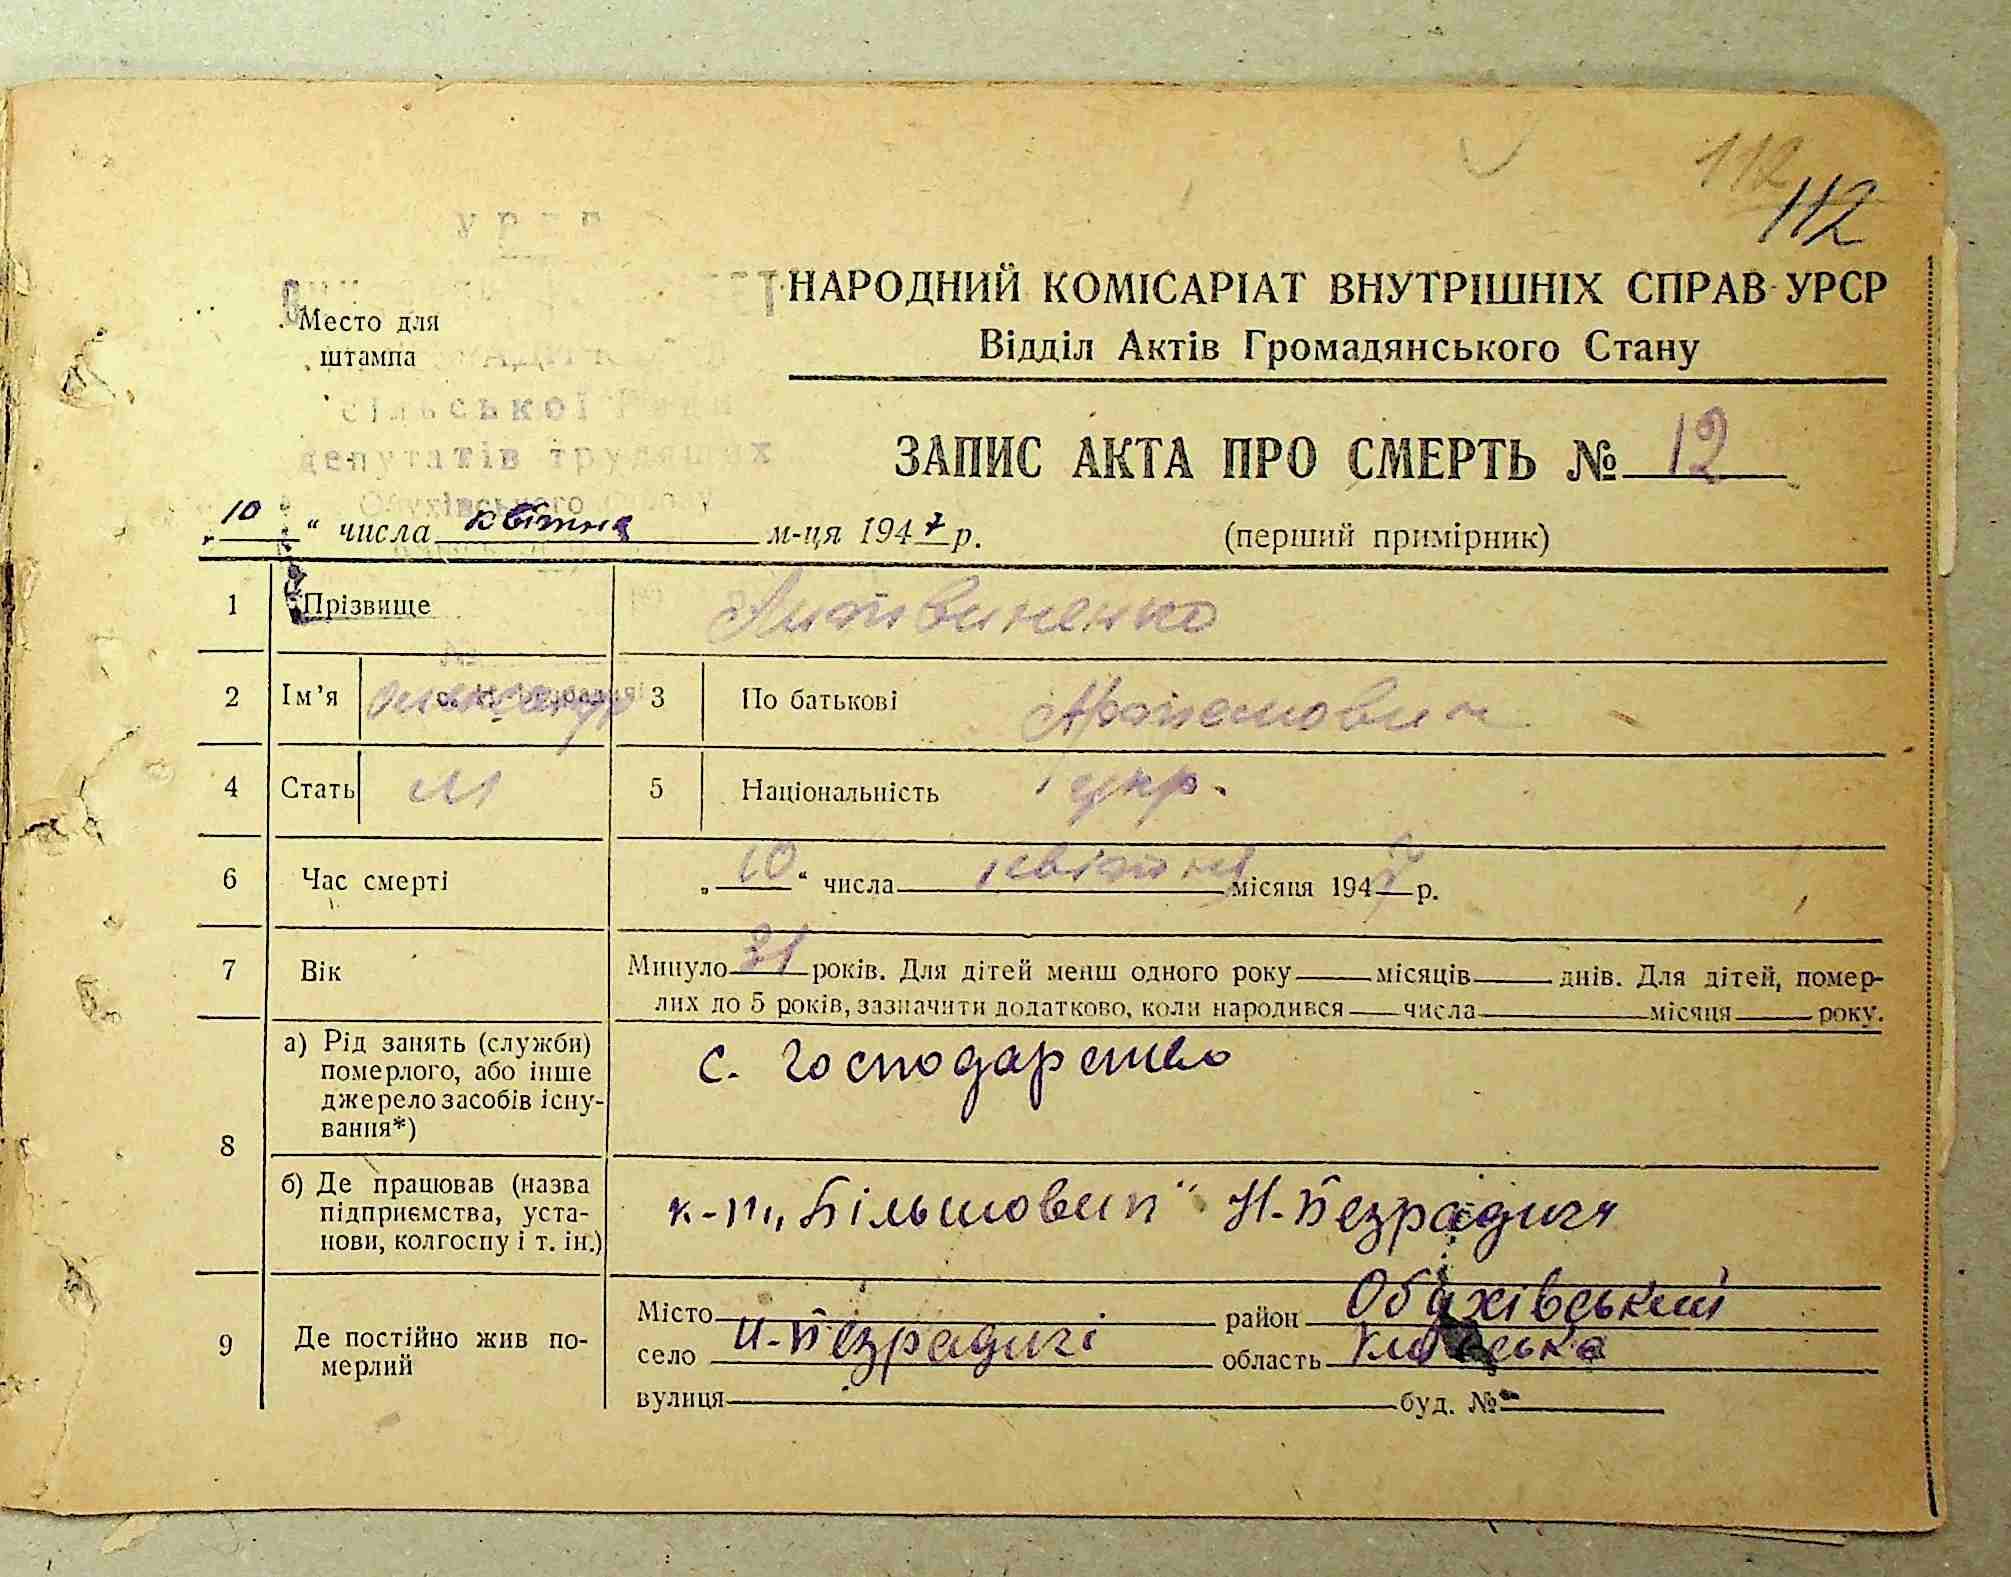 112
112
УРСР
Место для
штампа
НАРОДНИЙ КОМІСАРІАТ ВНУТРІШНІХ СПРАВ УРСР
Відділ Актів Громадянського Стану
сільської Ради
депутатів трудящих
Обухівського
ЗАПИС АКТА ПРО СМЕРТЬ № 12
(перший примірник)
10 “ числа квітня м-ця 1947 р.
1 Прізвище Литвиненко
2 Ім’я Олександр 3 По батькові Артемович
4 Стать М 5 Національність укр.
6 Час смерті „ 10 “ числа квітня місяця 1947 р.
7 Вік Минуло 31 років. Для дітей менш одного року місяців днів. Для дітей, помер-
лих до 5 років, зазначити додатково, коли народився числа місяця року.
8 а) Рід занять (служби)
померлого, або інше
джерело засобів існу-
вання*)
с. господарство
б) Де працював (назва
підприємства, уста-
нови, колгоспу і т. ін.)
к-п „Більшовик“ Н-Безрадичи
9 Де постійно жив по-
мерлий
Місто район Обухівський
село Н-Безрадичі область Київська
вулиця буд. №